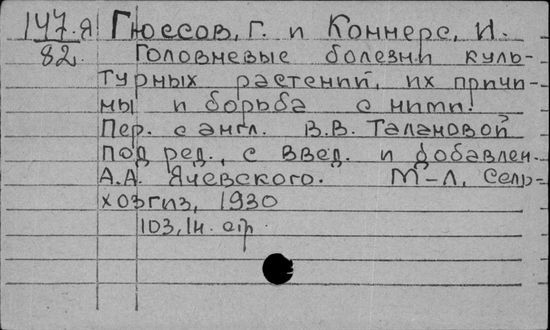 147.Я Гюссов, Г. и Коннерс, И.
82. Головневые болезни куль-
турных растений, их причи-
ны и борьба с ними.
Пер. с англ. В.В. Талановой
под ред., с введ. и добавлен.
А.А. Ячевского. М-Л, Сель-
хозгиз, 1930
103, 1н. стр.